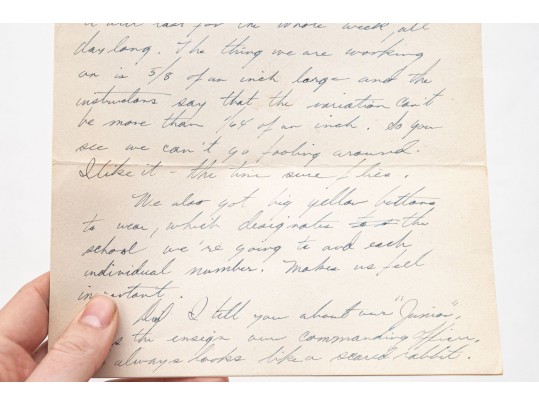 it will last for the whole week, all
day long. The thing we are working
on is 5/8 of an inch large and the
instructors say that the variation can't
be more than 1/64 of an inch. So you
see we can't go fooling around.
I like it - the time sure flies.
We also got big yellow buttons
to wear, which designates the
school we're going to and each
individual number. Makes us feel
important.
Did I tell you about our "Junior".
s the ensign our commanding officer.
always looks like a scared rabbit.